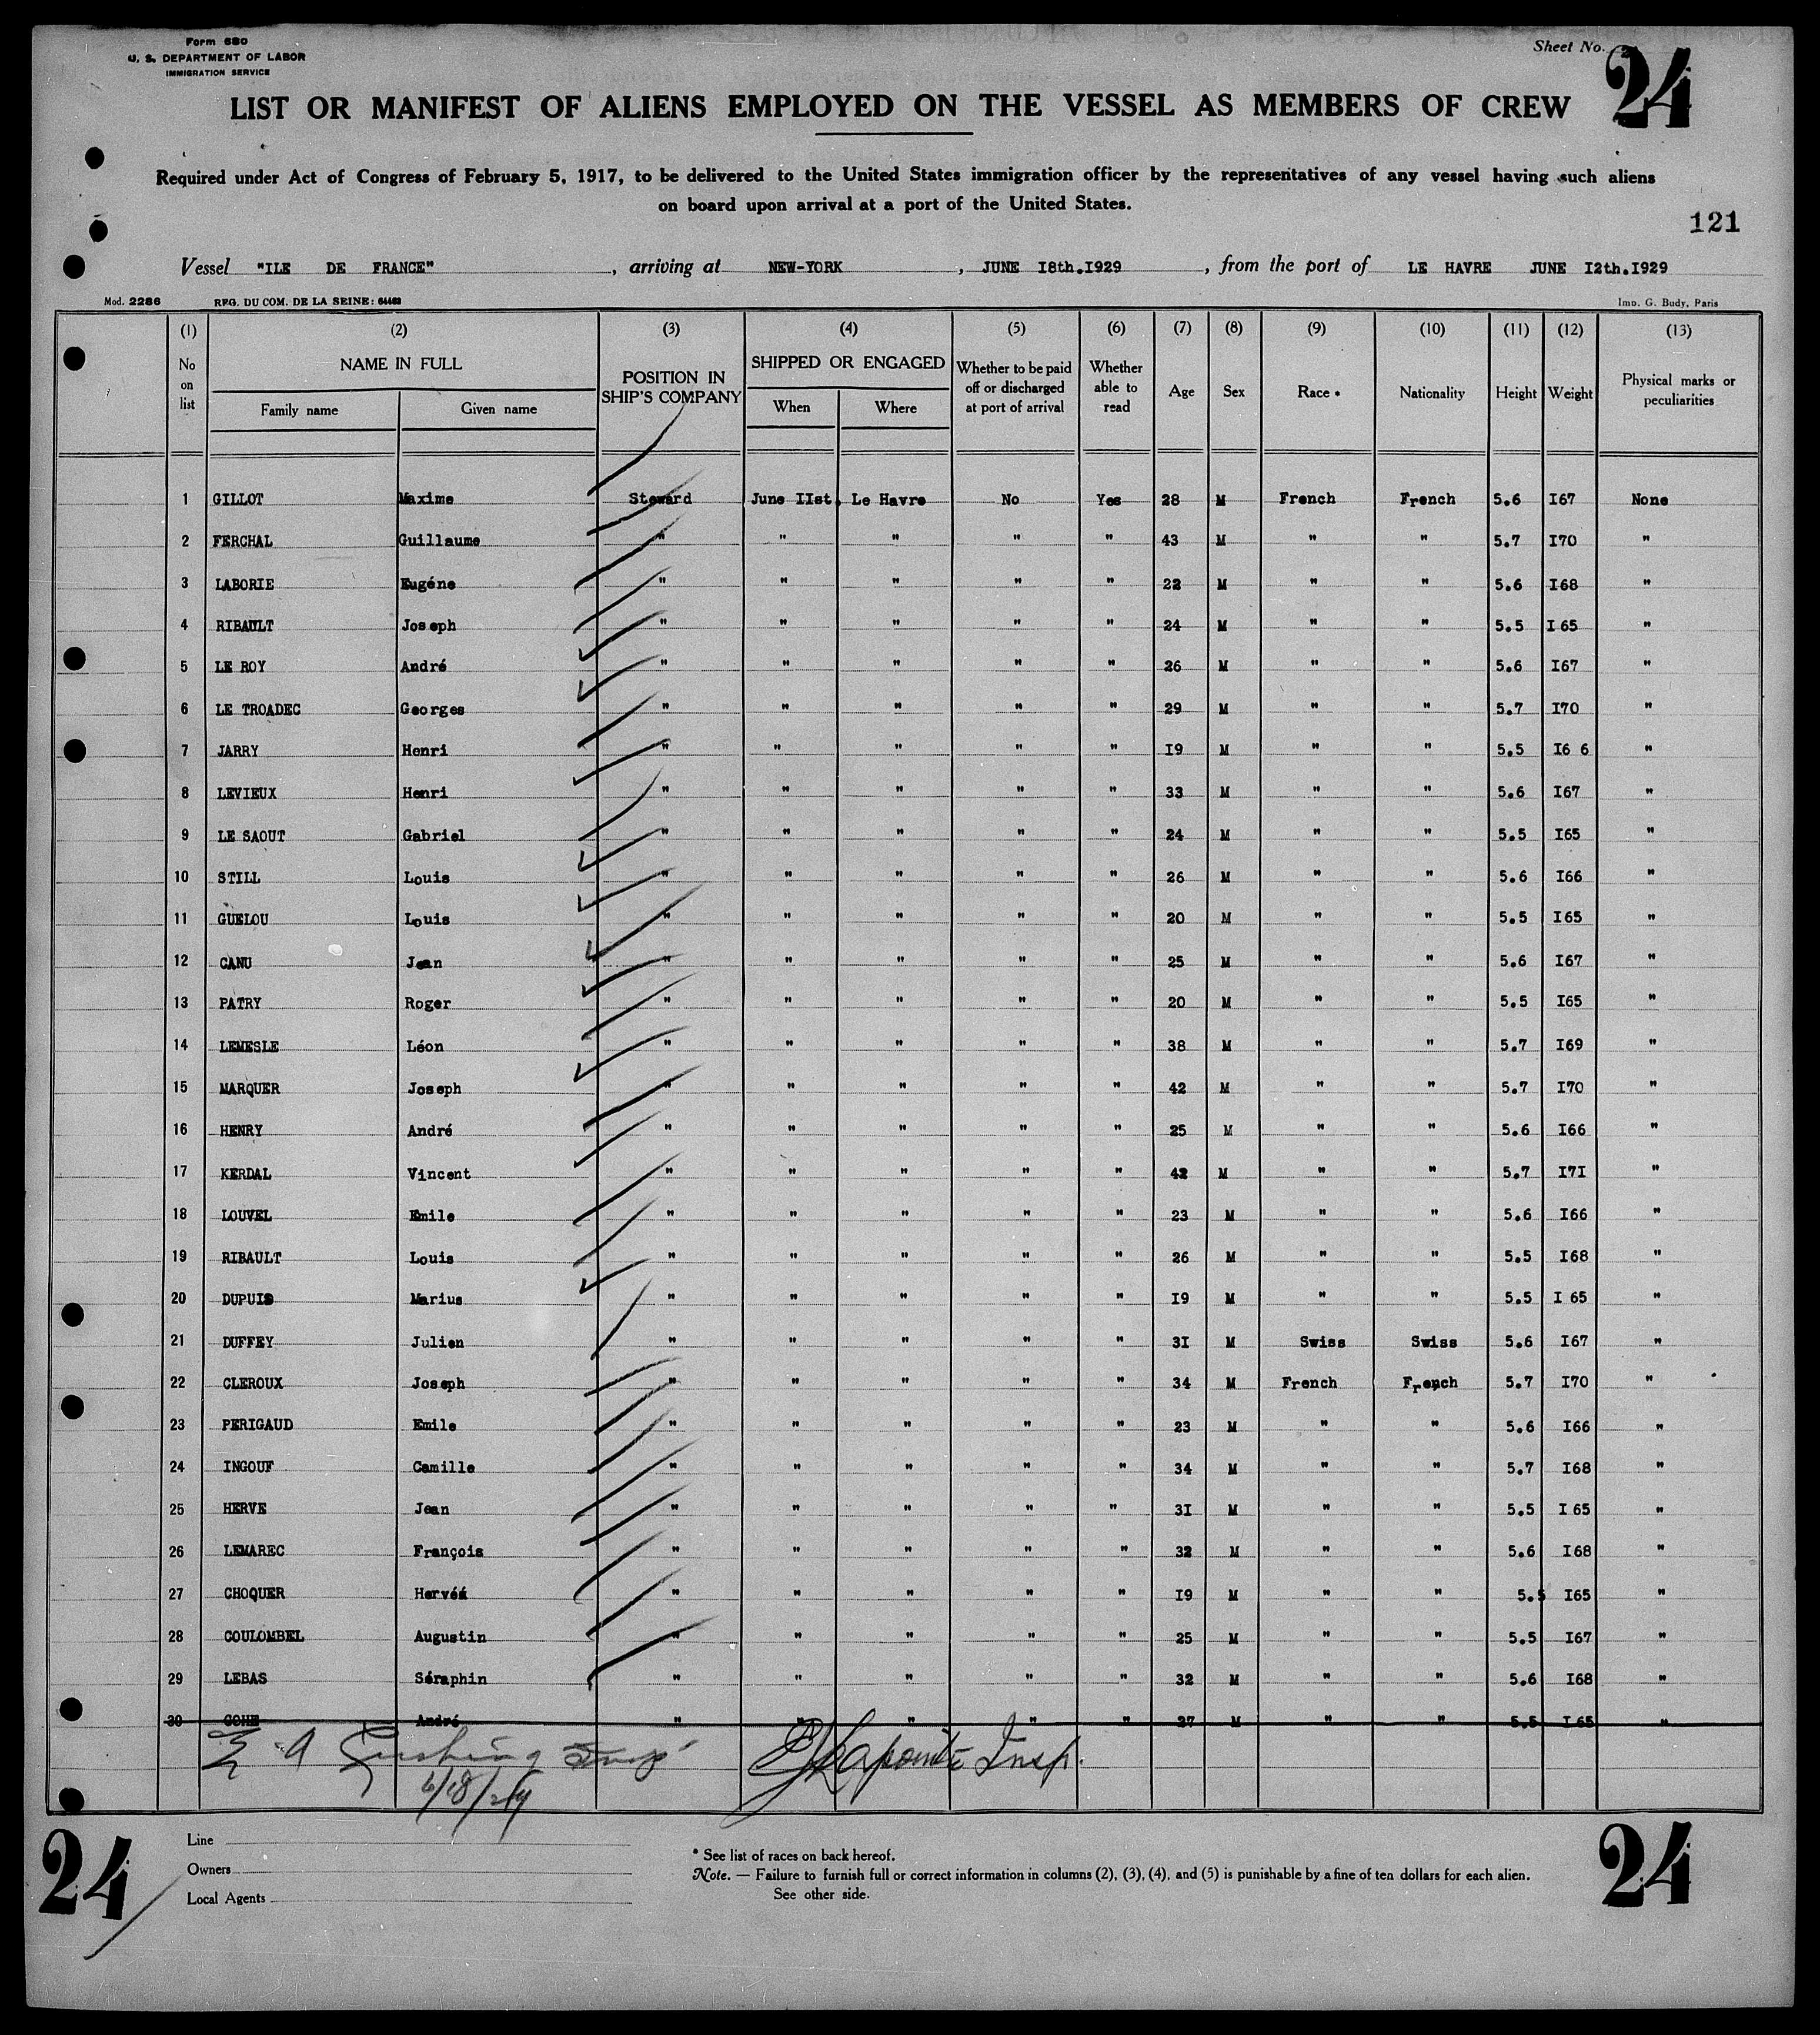 Form 680
U. S. DEPARTMENT OF LABOR
IMMIGRATION SERVICE
Sheet No. 24
LIST OR MANIFEST OF ALIENS EMPLOYED ON THE VESSEL AS MEMBERS OF CREW
Required under Act of Congress of February 5, 1917, to be delivered to the United States immigration officer by the representatives of any vessel having such aliens
on board upon arrival at a port of the United States.
121
Vessel "ILE DE FRANCE" , arriving at NEW-YORK , JUNE I8th.I929 , from the port of LE HAVRE JUNE I2th.I929
Mod. 2286 REG. DU COM. DE LA SEINE: Imp. G. Budy, Paris
(1) (2) (3) (4) (5) (6) (7) (8) (9) (10) (11) (12) (13)
No on list NAME IN FULL Family name Given name POSITION IN SHIP'S COMPANY SHIPPED OR ENGAGED When Where Whether to be paid off or discharged at port of arrival Whether able to read Age Sex Race * Nationality Height Weight Physical marks or peculiarities
1 GILLOT Maxime Steward June IIst. Le Havre No Yes 28 M French French 5.6 I67 None
2 FERCHAL Guillaume " " " " " 43 M " " 5.7 I70 "
3 LABORIE Eugéne " " " " " 22 M " " 5.6 I68 "
4 RIBAULT Joseph " " " " " 24 M " " 5.5 I 65 "
5 LE ROY André " " " " " 26 M " " 5.6 I67 "
6 LE TROADEC Georges " " " " " 29 M " " 5.7 I70 "
7 JARRY Henri " " " " " I9 M " " 5.5 I6 6 "
8 LEVIEUX Henri " " " " " 33 M " " 5.6 I67 "
9 LE SAOUT Gabriel " " " " " 24 M " " 5.5 I65 "
10 STILL Louis " " " " " 26 M " " 5.6 I66 "
11 GUELOU Louis " " " " " 20 M " " 5.5 I65 "
12 CANU Jean " " " " " 25 M " " 5.6 I67 "
13 PATRY Roger " " " " " 20 M " " 5.5 I65 "
14 LEMESLE Léon " " " " " 38 M " " 5.7 I69 "
15 MARQUER Joseph " " " " " 42 M " " 5.7 I70 "
16 HENRY André " " " " " 25 M " " 5.6 I66 "
17 KERDAL Vincent " " " " " 42 M " " 5.7 I7I "
18 LOUVEL Emile " " " " " 23 M " " 5.6 I66 "
19 RIBAULT Louis " " " " " 26 M " " 5.5 I68 "
20 DUPUIS Marius " " " " " I9 M " " 5.5 I 65 "
21 DUFFEY Julien " " " " " 3I M Swiss Swiss 5.6 I67 "
22 CLEROUX Joseph " " " " " 34 M French French 5.7 I70 "
23 PERIGAUD Emile " " " " " 23 M " " 5.6 I66 "
24 INGOUF Camille " " " " " 34 M " " 5.7 I68 "
25 HERVE Jean " " " " " 3I M " " 5.5 I 65 "
26 LEMAREC François " " " " " 32 M " " 5.6 I68 "
27 CHOQUER Hervéá " " " " " I9 M " " 5.5 I65 "
28 COULOMBEL Augustin " " " " " 25 M " " 5.5 I67 "
29 LEBAS Séraphin " " " " " 32 M " " 5.6 I68 "
30 COHE André " " " " " 27 M " " 5.5 I 65 "
E. A Cushing Insp EJLapointe Insp.
6/18/29
24 24
Line
Owners
Local Agents
* See list of races on back hereof.
Note. — Failure to furnish full or correct information in columns (2), (3), (4), and (5) is punishable by a fine of ten dollars for each alien.
See other side.